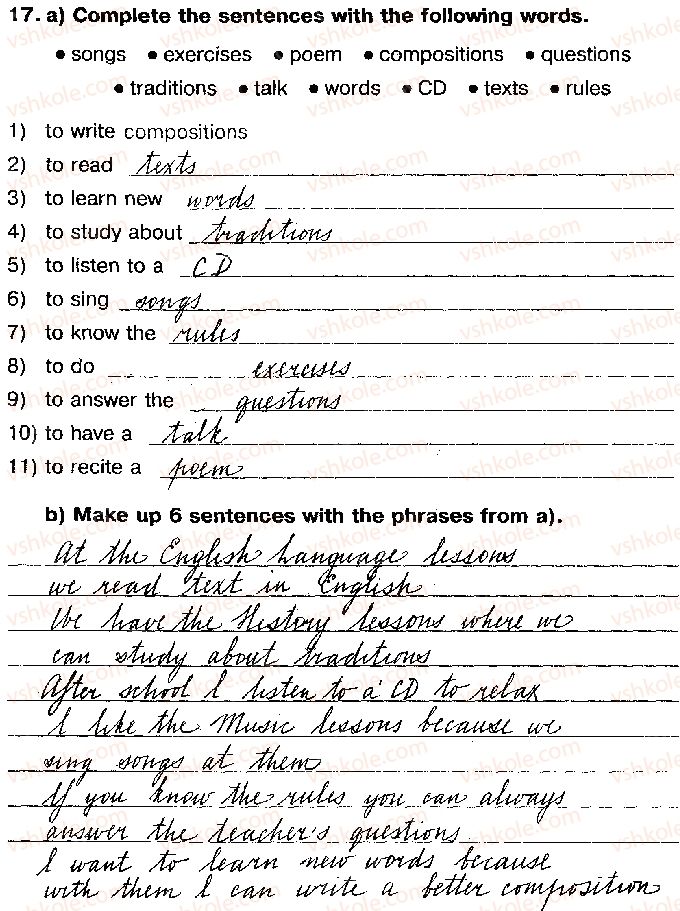 17. a) Complete the sentences with the following words.
• songs • exercises • poem • compositions • questions
• traditions • talk • words • CD • texts • rules
1) to write compositions
2) to read texts
3) to learn new words
4) to study about traditions
5) to listen to a CD
6) to sing songs
7) to know the rules
8) to do exercises
9) to answer the questions
10) to have a talk
11) to recite a poem
b) Make up 6 sentences with the phrases from a).
At the English Language lessons
we read text in English
We have the History lessons where we
can study about traditions
After school I listen to a CD to relax
I like the Music lessons because we
sing songs at them
If you know the rules you can always
answer the teacher's questions
I want to learn new words because
with them I can write a better composition